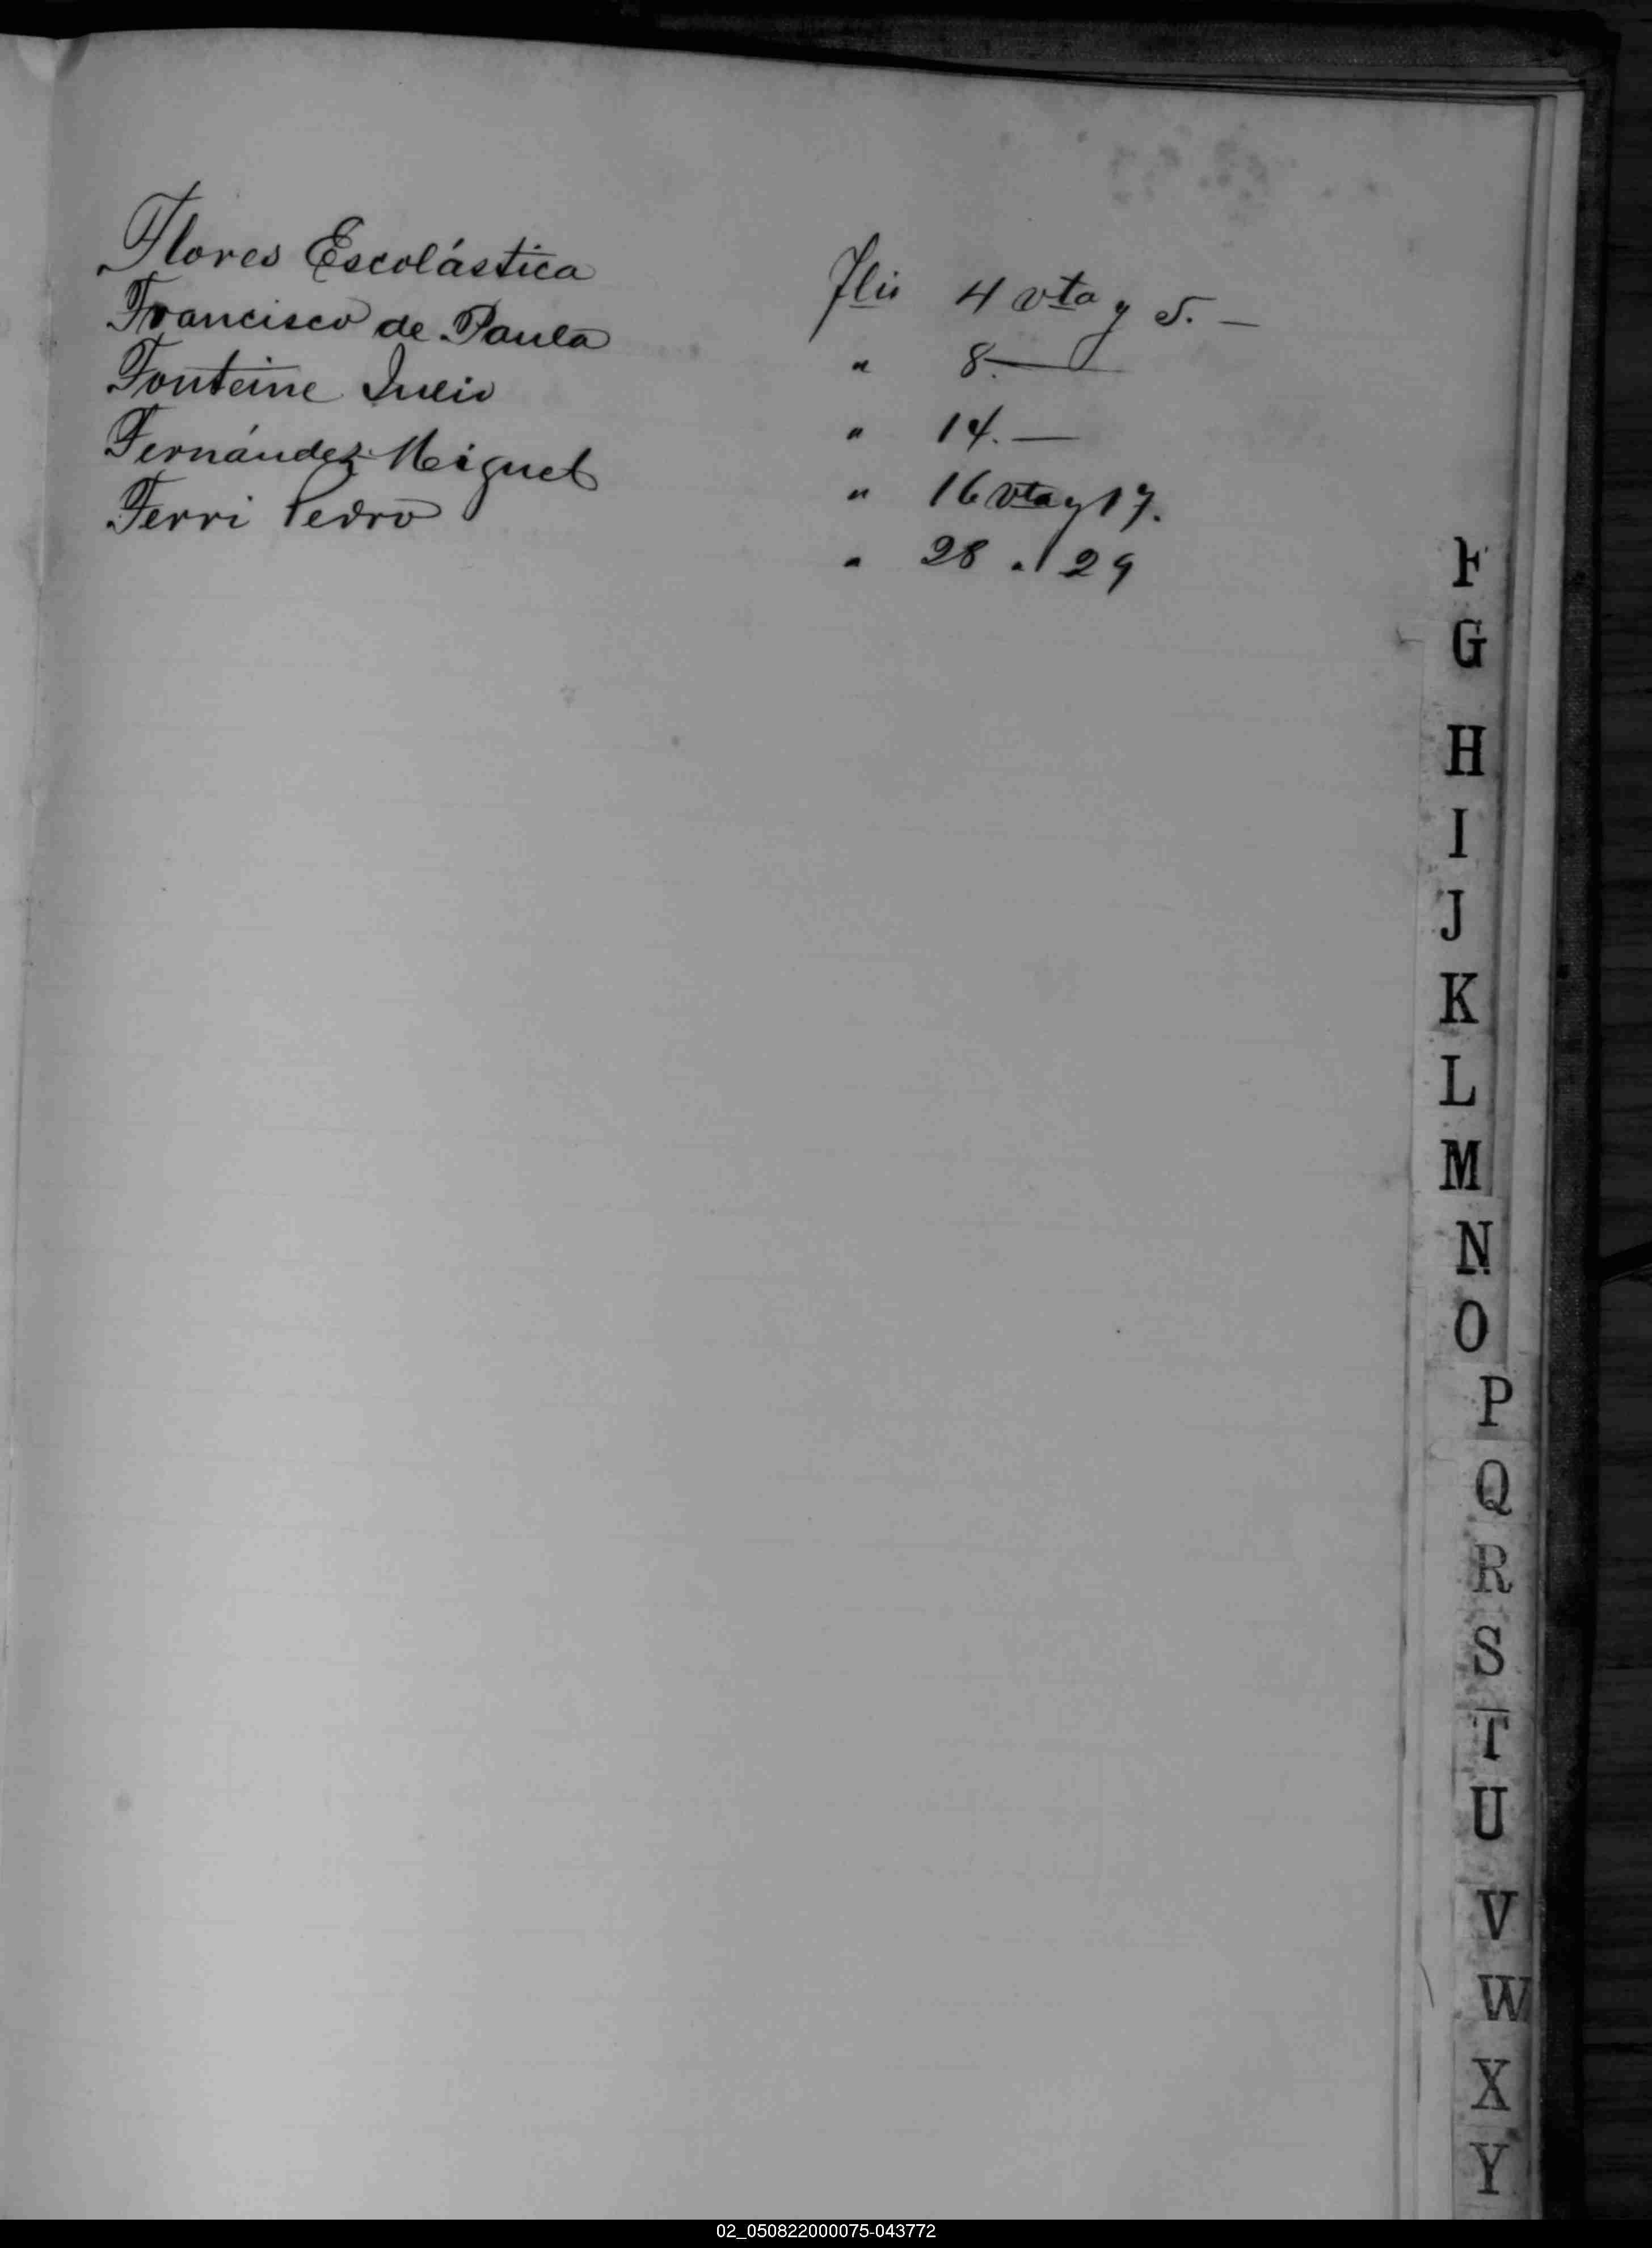 Flores Escolástica Flio 4 vta y 5. —
Francisco de Paula " 8. —
Fonteine Julio " 14. —
Fernández Miguel " 16 vta y 17.
Ferri Pedro " 28 " 29
F
G
H
I
J
K
L
M
N
O
P
Q
R
S
T
U
V
W
X
Y
02_050822000075-043772